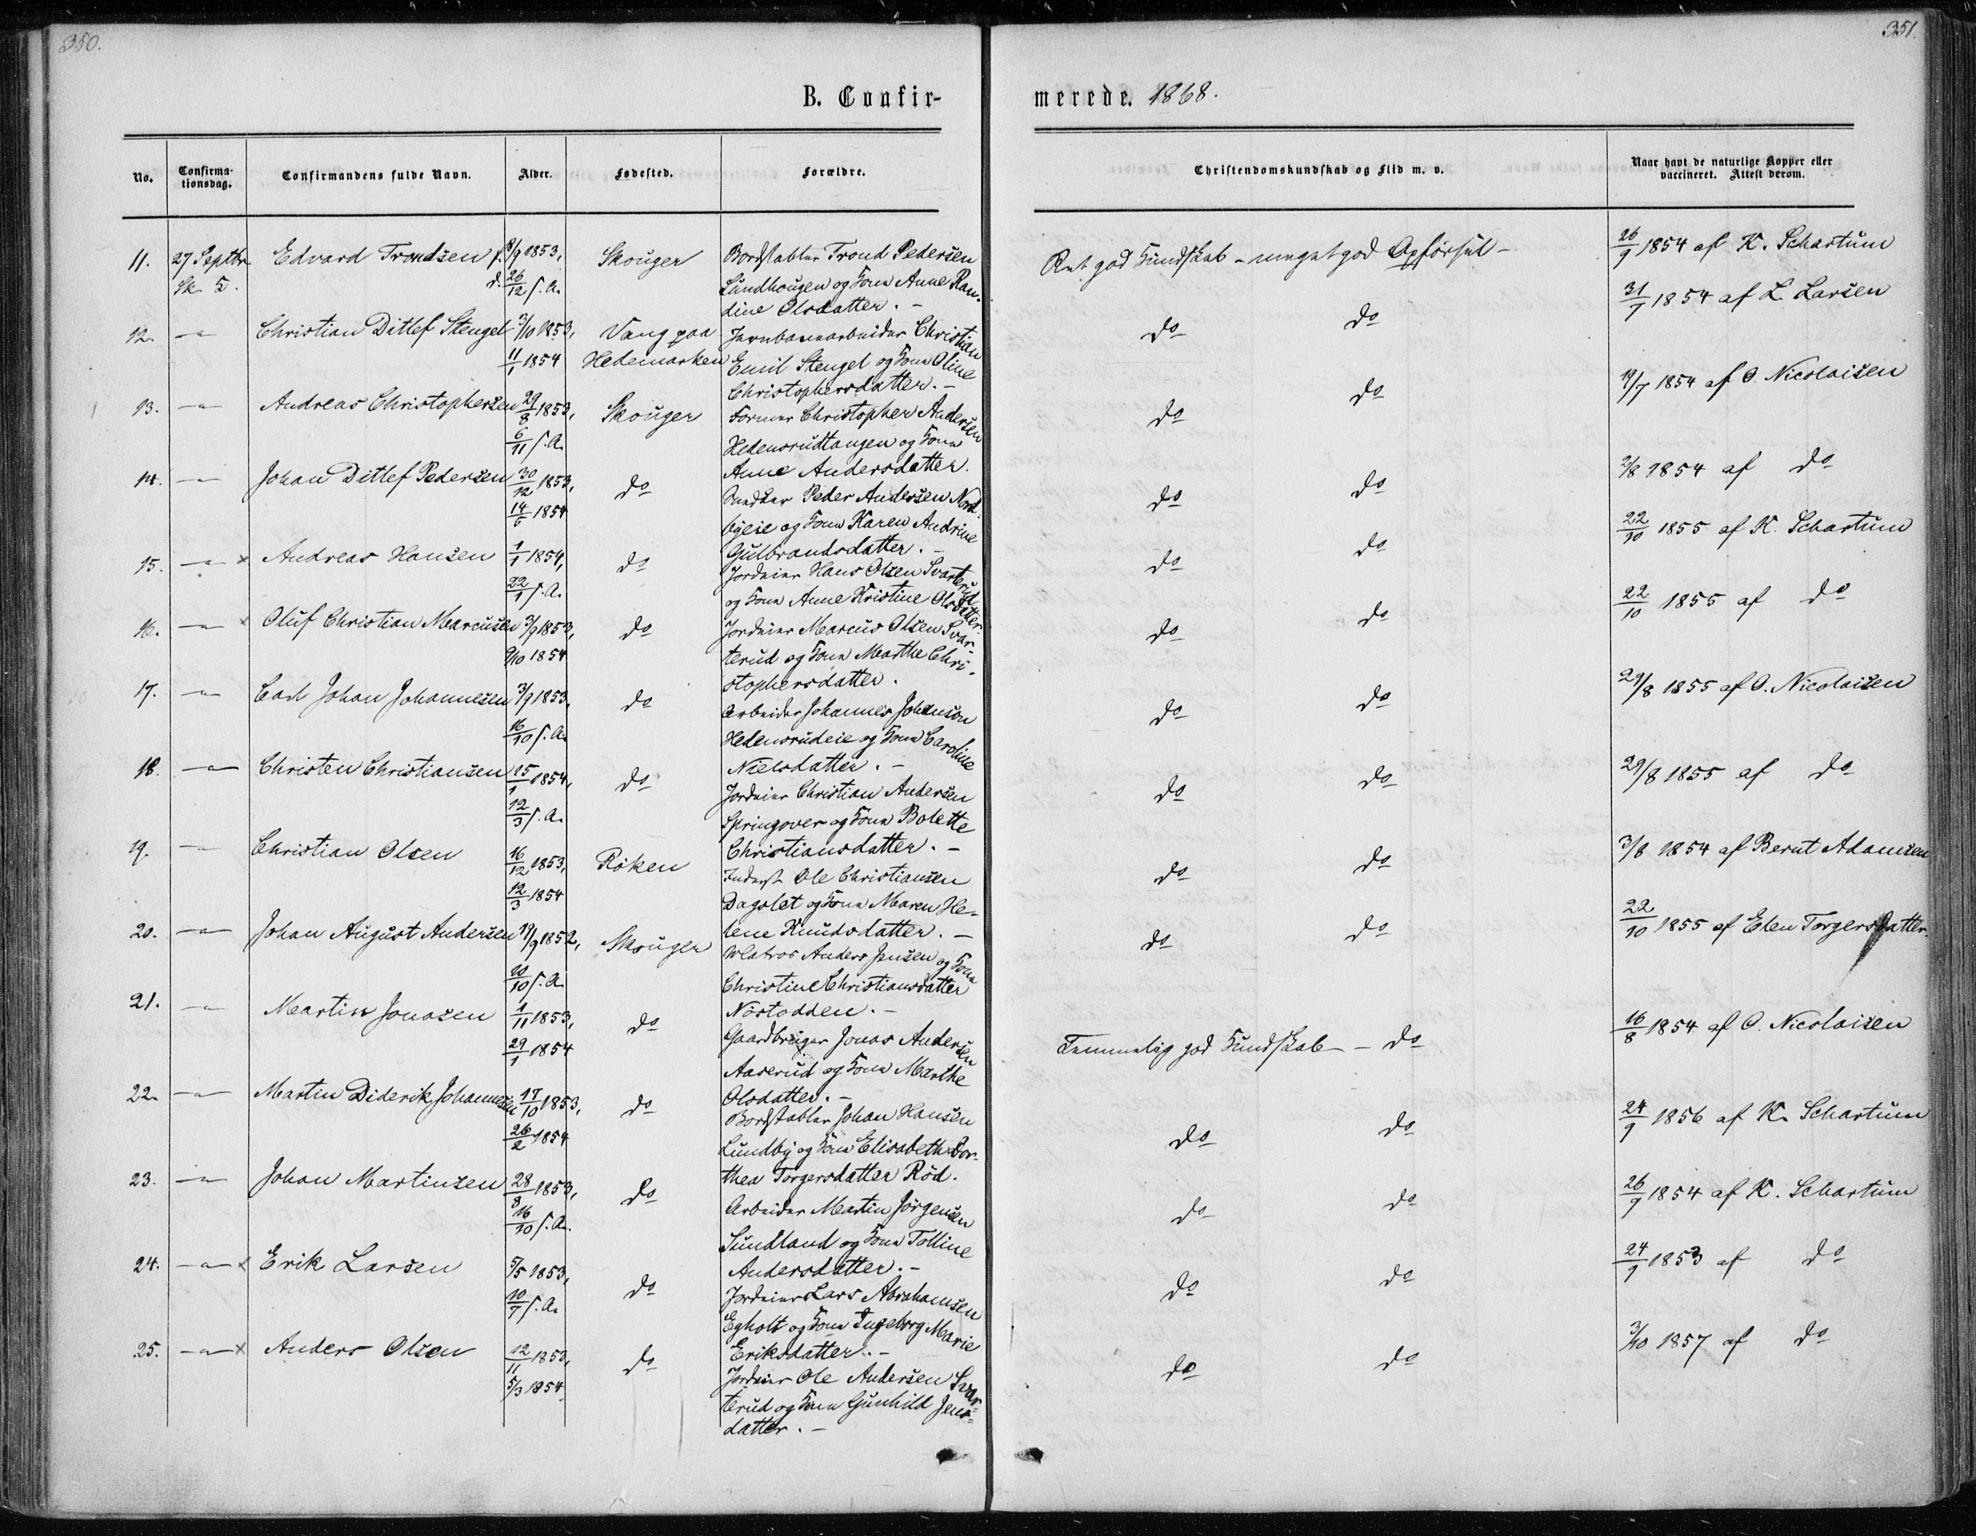 350.
351.
B. Confir-
merede. 1868.
No.
Confirma-
tionsdag.
Confirmandens fulde Navn.
Alder.
Fødested.
Forældre.
Christendomskundskab og Flid m. v.
Naar havt de naturlige Kopper eller
vaccineret. Attest derom.
11. 27 Septbr Edvard Trondsen f. 8/9 1853, Skouger Bordstabler Trond Pedersen Ret god Kundskab – meget god Opførsel – 26/9 1854 af K. Schartum
Sk 5. d. 26/12 s. A. Sundhougen og Kone Anne Ran-
dine Olsdatter. –
12. –"– Christian Ditlef Stengel 3/10 1853, Vang paa Jernbanearbeider Christian do do 31/7 1854 af L. Larsen
11/1 1854 Hedemarken Emil Stengel og Kone Oline
Christophersdatter. –
13. –"– Andreas Christophersen 29/8 1853, Skouger Former Christopher Andersen do do 19/7 1854 af O. Nicolaisen
6/11 s. A. Hedensrudtangen og Kone
Anne Andersdatter.
14. –"– Johan Ditlef Pedersen 30/12 1853, do Peder Andersen Nord- do do 2/8 1854 af do
14/5 1854 byeie og Kone Karen Andrine
Gulbrandsdatter. –
15. –"– x Andreas Hansen 1/1 1854, do Jordeier Hans Olsen Svarterud do do 22/10 1855 af K. Schartum
22/1 s. A. og Kone Anne Kristine Olsdatter.
16. –"– x Oluf Christian Marcusen 3/9 1853, do Jordeier Marcus Olsen Svar- do do 22/10 1855 af do
9/10 1854 terud og Kone Marthe Chri-
stophersdatter.
17. –"– Carl Johan Johannesen 3/9 1853, do Arbeider Johannes Johanson do do 29/8 1855 af O. Nicolaisen
16/10 s. A. Hedensrudeie og Kone Caroline
Nielsdatter. –
18. –"– Christen Christiansen 15/1 1854, do Jordeier Christian Andersen do do 29/8 1855 af do
12/3 s. A. Springover og Kone Bolette
Christiansdatter. –
19. –"– Christian Olsen 16/12 1853, Røken Inderst Ole Christiansen do do 3/8 1854 af Bernt Adamsen
12/3 1854 Dagslet og Kone Maren He-
lene Knudsdatter. –
20. –"– Johan August Andersen 11/9 1852, Skouger Matros Anders Jensen og Kone do do 22/10 1855 af Elen Torgersdatter.
10/10 s. A. Christine Christiansdatter
Nøstodden. –
21. –"– Martin Jonasen 1/11 1853, do Gaardbruger Jonas Andersen Temmelig god Kundskab – do 16/8 1854 af O. Nicolaisen
29/1 1854 Aaserud og Kone Marthe
Olsdatter. –
22. –"– Martin Diderik Johannesen 17/10 1853, do Bordstabler Johan Hansen do do 24/9 1856 af K. Schartum
26/2 1854 Lundby og Kone Elisabeth Dor-
thea Torgersdatter Rød.
23. –"– Johan Martinsen 28/8 1853, do Arbeider Martin Jørgensen do do 26/7 1854 af K. Schartum
16/10 s. A. Sundland og Kone Tolline
Andersdatter. –
24. –"– x Erik Larsen 5/5 1853, do Jordeier Lars Abrahamsen do do 24/9 1853 af do
10/7 s. A. Egholt og Kone Ingeborg Marie
Eriksdatter. –
25. –"– x Anders Olsen 12/11 1853, do Jordeier Ole Andersen Svar- do do 3/10 1857 af do
5/3 1854 terud og Kone Gunhild Jens-
datter. –